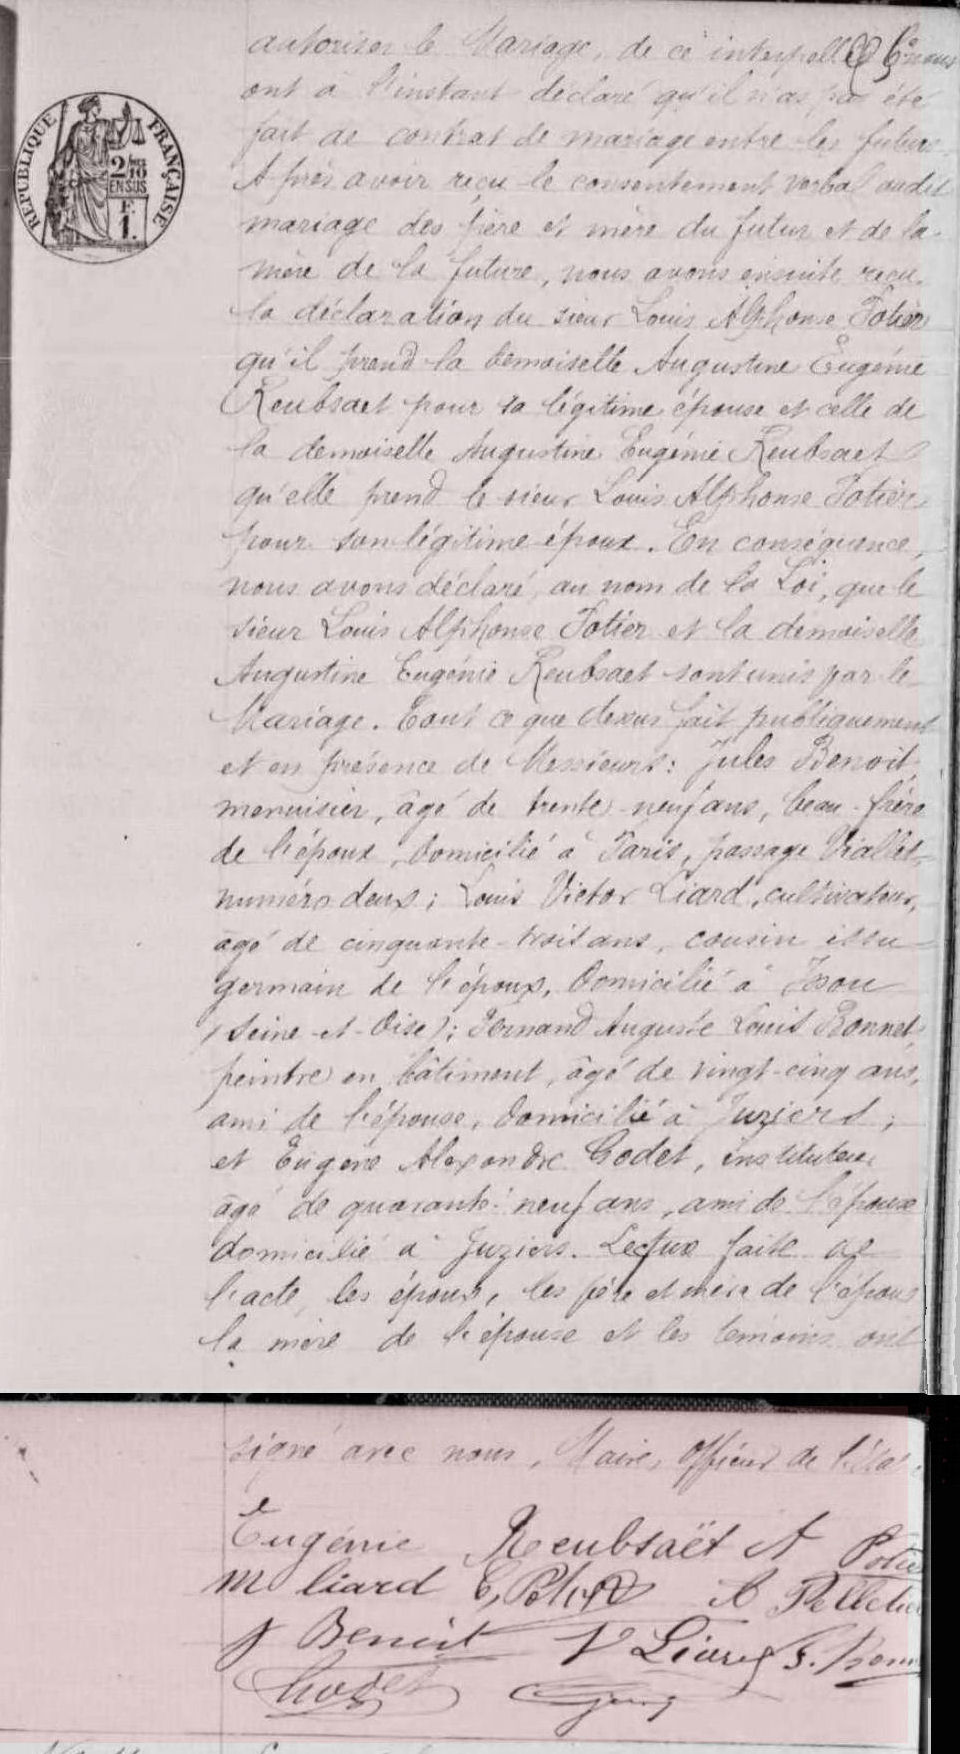 autoriser le Mariage, de ce interpellés
ont à l'instant déclaré qu'il n'as pas été
fait de contrat de mariage entre les futurs.
Après avoir reçu le consentement verbal audit
mariage des père et mère du futur et de la
mère de la future, nous avons ensuite reçu
la déclaration du sieur Louis Alphonse Potier
qu'il prend la demoiselle Augustine Eugénie
Reubsaet pour sa légitime épouse et celle de
la demoiselle Augustine Eugénie Reubsaet
qu'elle prend le sieur Louis Alphonse Potier
pour son légitime époux. En conséquence,
nous avons déclaré, au nom de la Loi, que le
sieur Louis Alphonse Potier et la demoiselle
Augustine Eugénie Reubsaet sont unis par le
Mariage. Tout ce que dessus fait publiquement
et en présence de Messieurs: Jules Benoit,
menuisier, âgé de trente-neuf ans, beau-frère
de l'époux, domicilié à Paris, passage Viallet
numéro deux; Louis Victor Liard, cultivateur,
âgé de cinquante-trois ans, cousin issu
germain de l'époux, domicilié à Issou
(Seine-et-Oise); Fernand Auguste Louis Ronnet,
peintre en bâtiment, âgé de vingt-cinq ans,
ami de l'épouse, domicilié à Juziers;
et Eugène Alexandre Godet, instituteur
âgé de quarante-neuf ans, ami de l'épouse
domicilié à Juziers. Lecture faite de
l'acte, les époux, les père et mère de l'époux
la mère de l'épouse et les témoins ont
signé avec nous, Maire, Officier de l'Eta
REPUBLIQUE FRANÇAISE
2/10
EN SUS
F.
1.
Eugénie Reubsaët A Potier
M Liard E, Potier A Pelletier
J Benoit V Liard F. Ronn
Godet